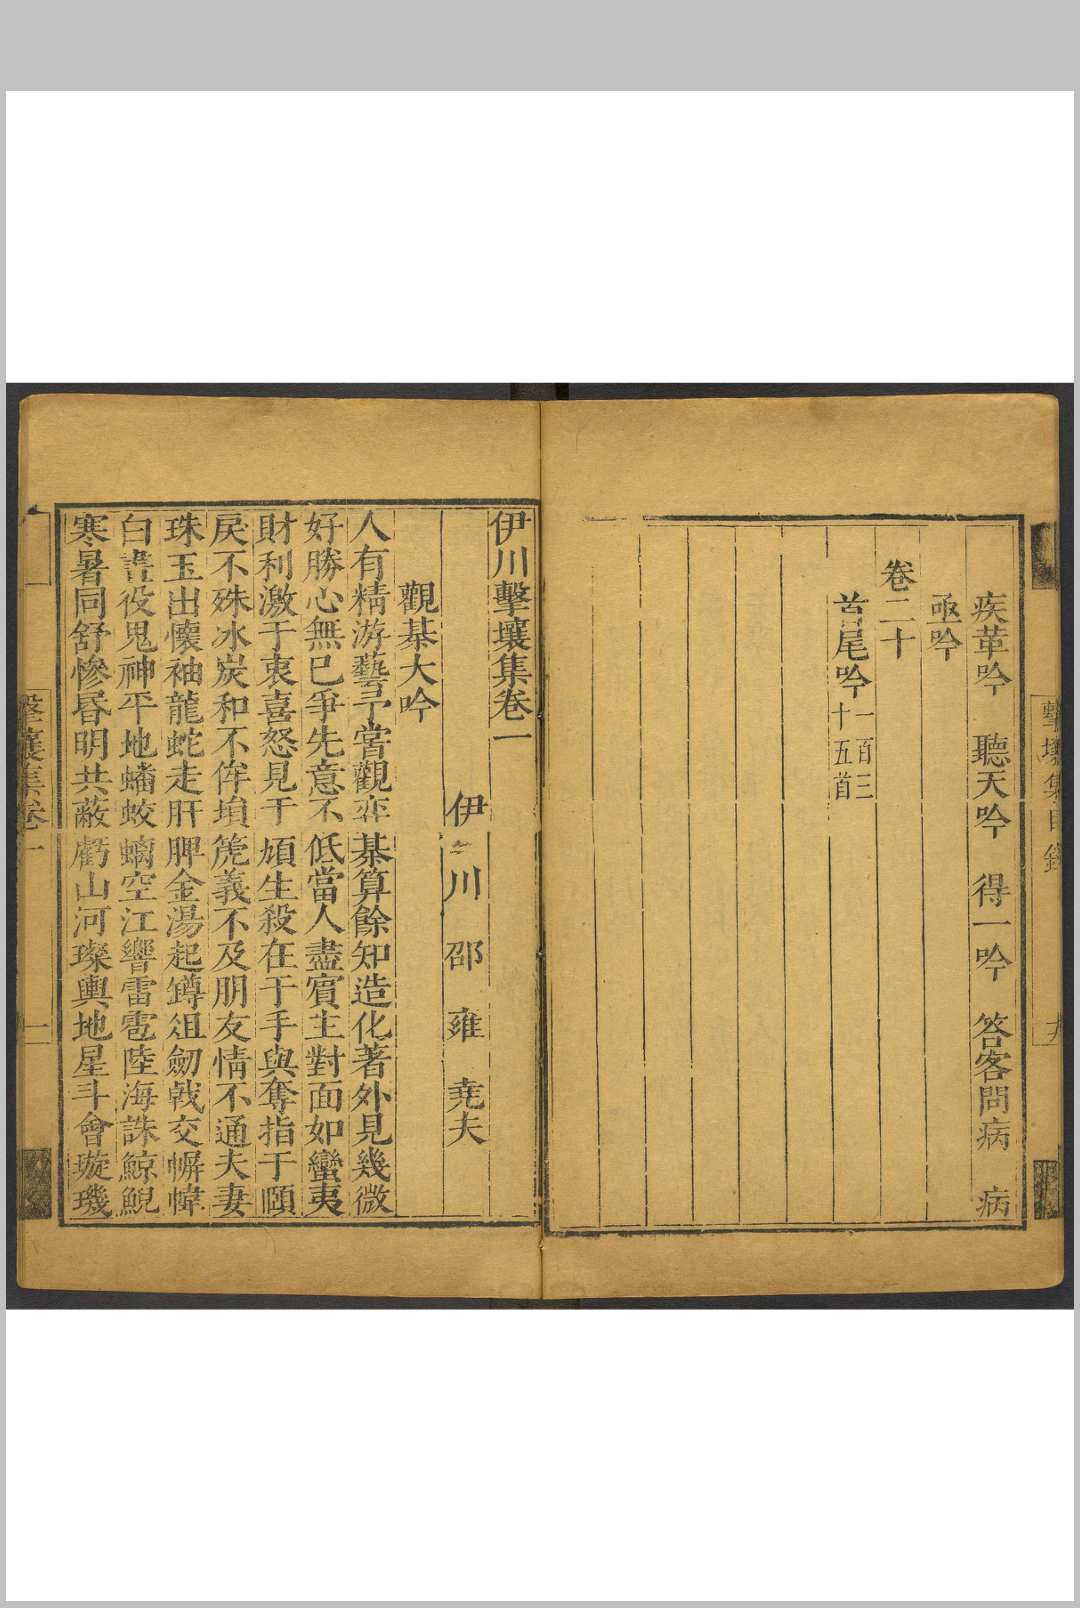 疾革吟 聽天吟 得一吟 答客問病 病
亟吟
卷二十
首尾吟 一百三十五首
擊壤集目錄
伊川擊壤集卷一
伊川 邵 雍 堯夫
觀棊大吟
人有精游藝予嘗觀弈棊算餘知造化著外見幾微
好勝心無已爭先意不低當人盡賓主對面如蠻夷
財利激于衷喜怒見于頄生殺在于手與奪指于頤
戾不殊冰炭和不侔塤篪義不及朋友情不通夫妻
珠玉出懷袖龍蛇走肝脾金湯起鐏俎劒戟交幈幃
白晝役鬼神平地蟠蛟螭空江響雷雹陸海誅鯨鯢
寒暑同舒慘昏明共蔽虧山河璨輿地星斗會璇璣
擊壤集卷一 一